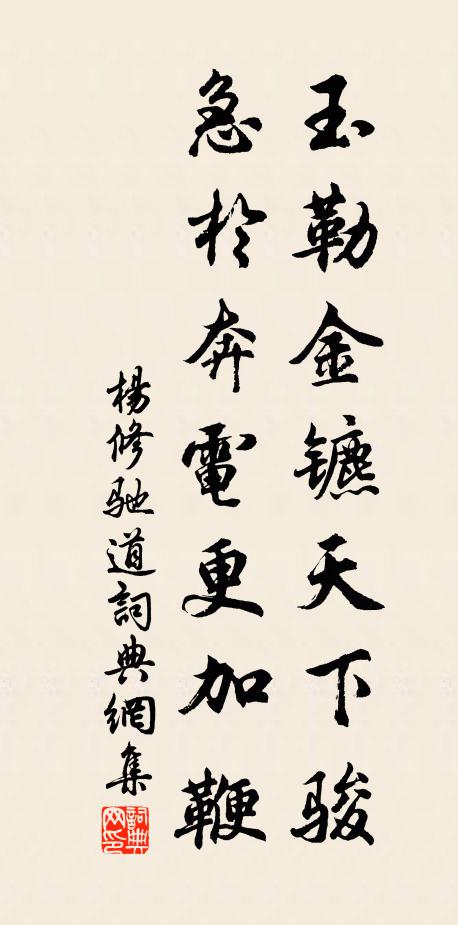 玉勒金镳天下骏
急於奔電更加鞭
楊修馳道詞典網集
詞典网印